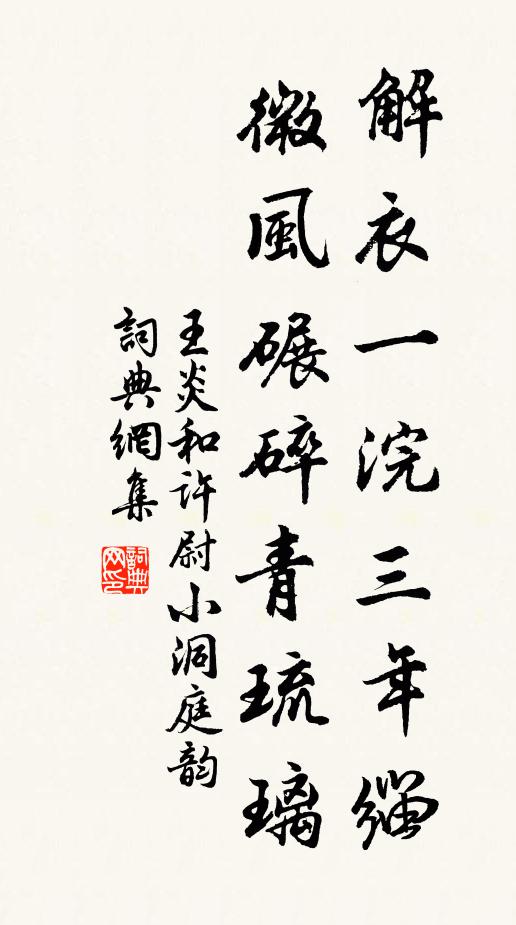 解衣一浣三年緇
微風碾碎青琉璃
王炎和許尉小洞庭韵
詞典網集
詞典网印